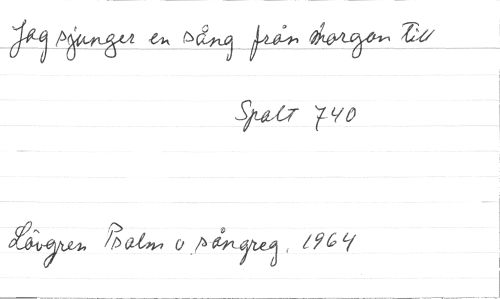 Jag sjunger en sång från morgon till
Spalt 740
Lövgren Psalm o. sångreg. 1964